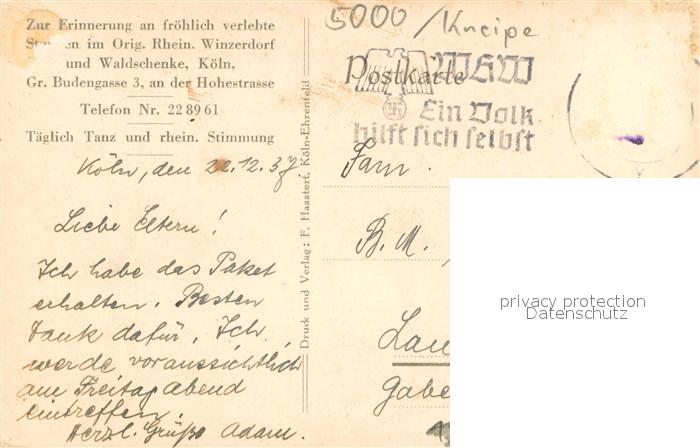 Zur Erinnerung an fröhlich verlebte
Stunden im Orig. Rhein. Winzerdorf
und Waldschenke, Köln,
Gr. Budengasse 3, an der Hohestrasse
Telefon Nr. 22 89 61
Täglich Tanz und rhein. Stimmung
5000 / Kneipe
Postkarte
WHW
Ein Volk
hilft sich selbst
Köln, den 22.12.37
Liebe Eltern!
Ich habe das Paket
erhalten. Besten
Dank dafür. Ich
werde voraussichtlich
am Freitag abend
eintreffen.
Herzl. Grüße Adam.
Druck und Verlag: F. Haastert, Köln-Ehrenfeld
Fam.
B. M.
Lau
Gabe
privacy protection
Datenschutz